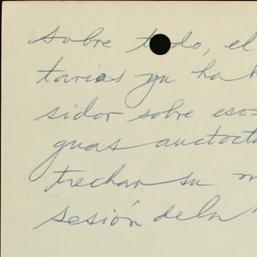 sobre todo, el
tarios yu ha
sidor sobre eso
guas auctoct
trechar su
sesión dela